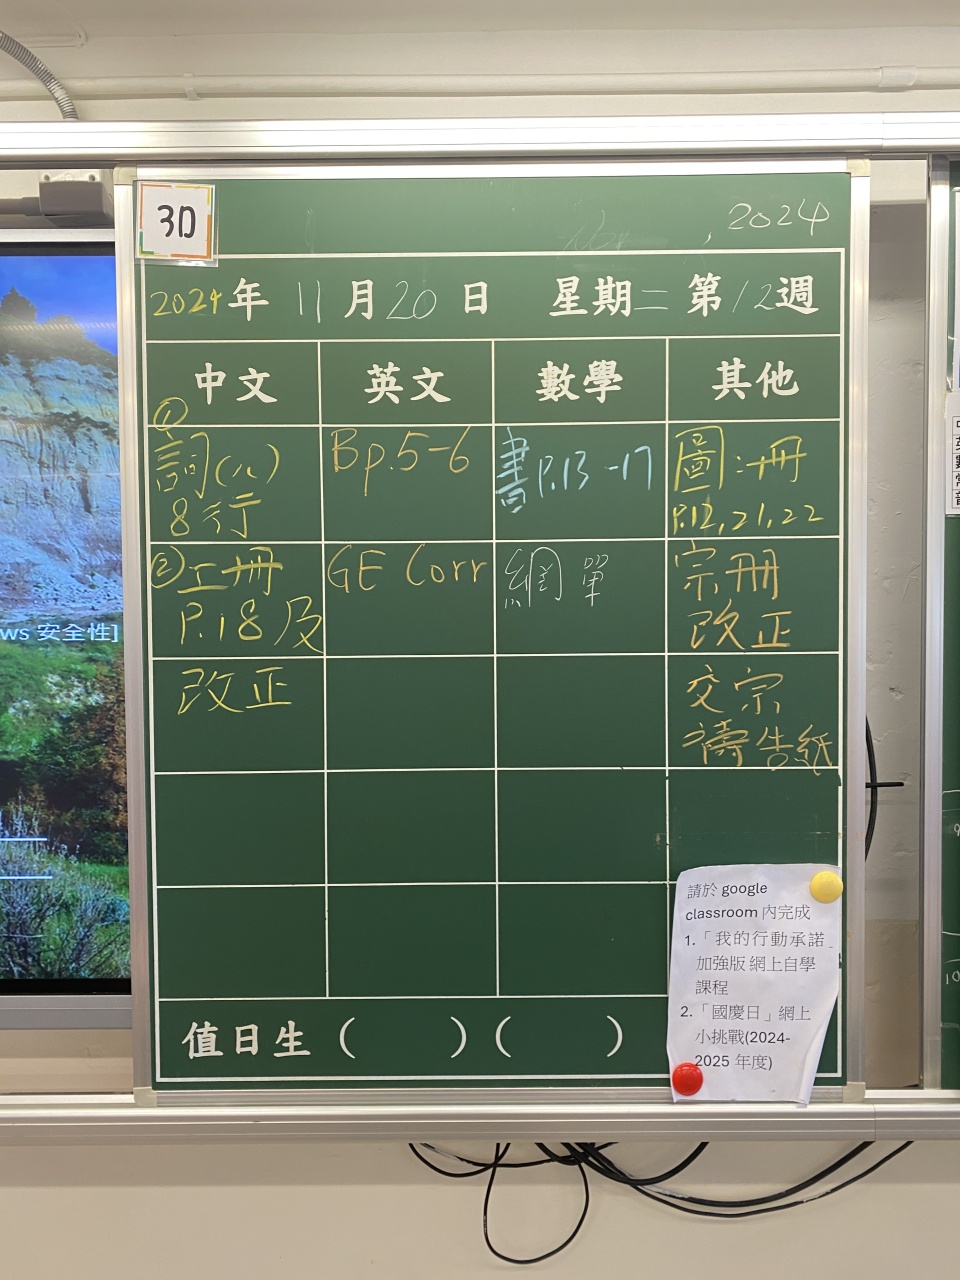 3D
2024
2024年 11月20日 星期二 第12週
中文 英文 數學 其他
①
詞(八)
8行
Bp.5-6
書P.13-17
圖:冊
P.12,21,22
②工冊
P.18及
GE Corr
網單
宗冊
改正
改正
交宗
禱告紙
值日生 ( ) ( )
請於 google
classroom 內完成
1.「我的行動承諾_
加強版 網上自學
課程
2.「國慶日」網上
小挑戰(2024-
2025 年度)
ws 安全性]